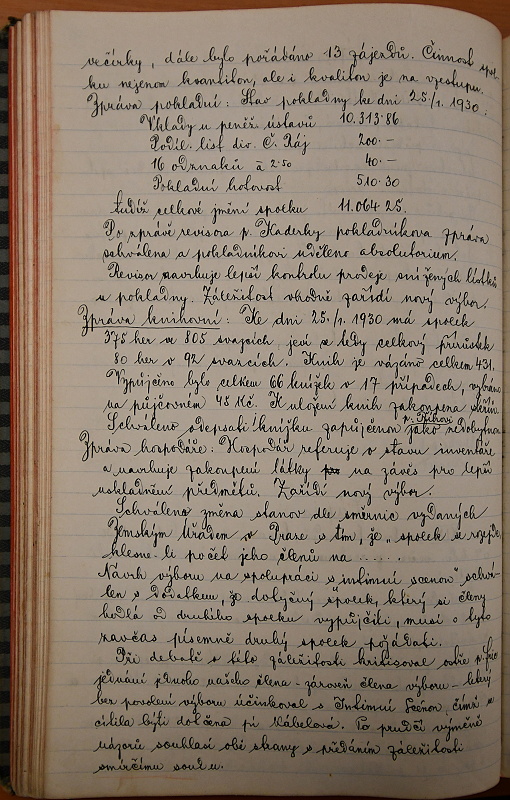 večírky, dále bylo pořádáno 13 zájezdů. Činnost spol-
ku nejenom kvantitou, ale i kvalitou je na vzestupu.
Zpráva pokladní: Stav pokladny ke dni 25./1. 1930:
Vklady u peněž. ústavů 10.313·86
Podíl. list div. Č. Ráj 200.—
16 odznaků à 2·50 40.—
Pokladní hotovost 510·30
tudíž celkové jmění spolku 11.064·25.
Po zprávě revisora p. Kaderky pokladníkova zpráva
schválena a pokladníkovi uděleno absolutorium.
Revisor navrhuje lepší kontrolu prodeje snížených lístků
u pokladny. Záležitost vhodně zařídí nový výbor.
Zpráva knihovní: Ke dni 25./1. 1930 má spolek
375 her v 805 svazcích jeví se tedy celkový přírůstek
80 her v 92 svazcích. Knih je vázáno celkem 431.
Vypůjčeno bylo celkem 66 knížek v 17 případech, vybráno
na půjčovném 45 Kč. K uložení knih zakoupena skříň
Schváleno odepsati knížku zapůjčenou jako nedobytnou
Zpráva hospodáře: Hospodář referuje o stavu inventáře
a navrhuje zakoupení látky na závěs pro lepší
uskladnění předmětů. Zařídí nový výbor.
Schválena změna stanov dle směrnic vydaných
Zemským úřadem v Praze s tím, že „spolek se rozejde,
klesne-li počet jeho členů na ......
Návrh výboru na spolupráci s intimní scenou" schvá-
len s dodatkem, že dotyčný spolek, který si členy
hodlá od druhého spolku vypůjčiti, musí o tyto
zavčas písemně druhý spolek požádati.
Při debatě o této záležitosti kritisoval ostře p.
jednání jednoho našeho člena - zároveň člena výboru - který
bez povolení výboru účinkoval s Intimní Scénou, čímž se
cítila býti dotčena pí Kábelová. Po prudší výměně
názorů souhlasí obě strany s předáním záležitosti
smírčímu soudu.